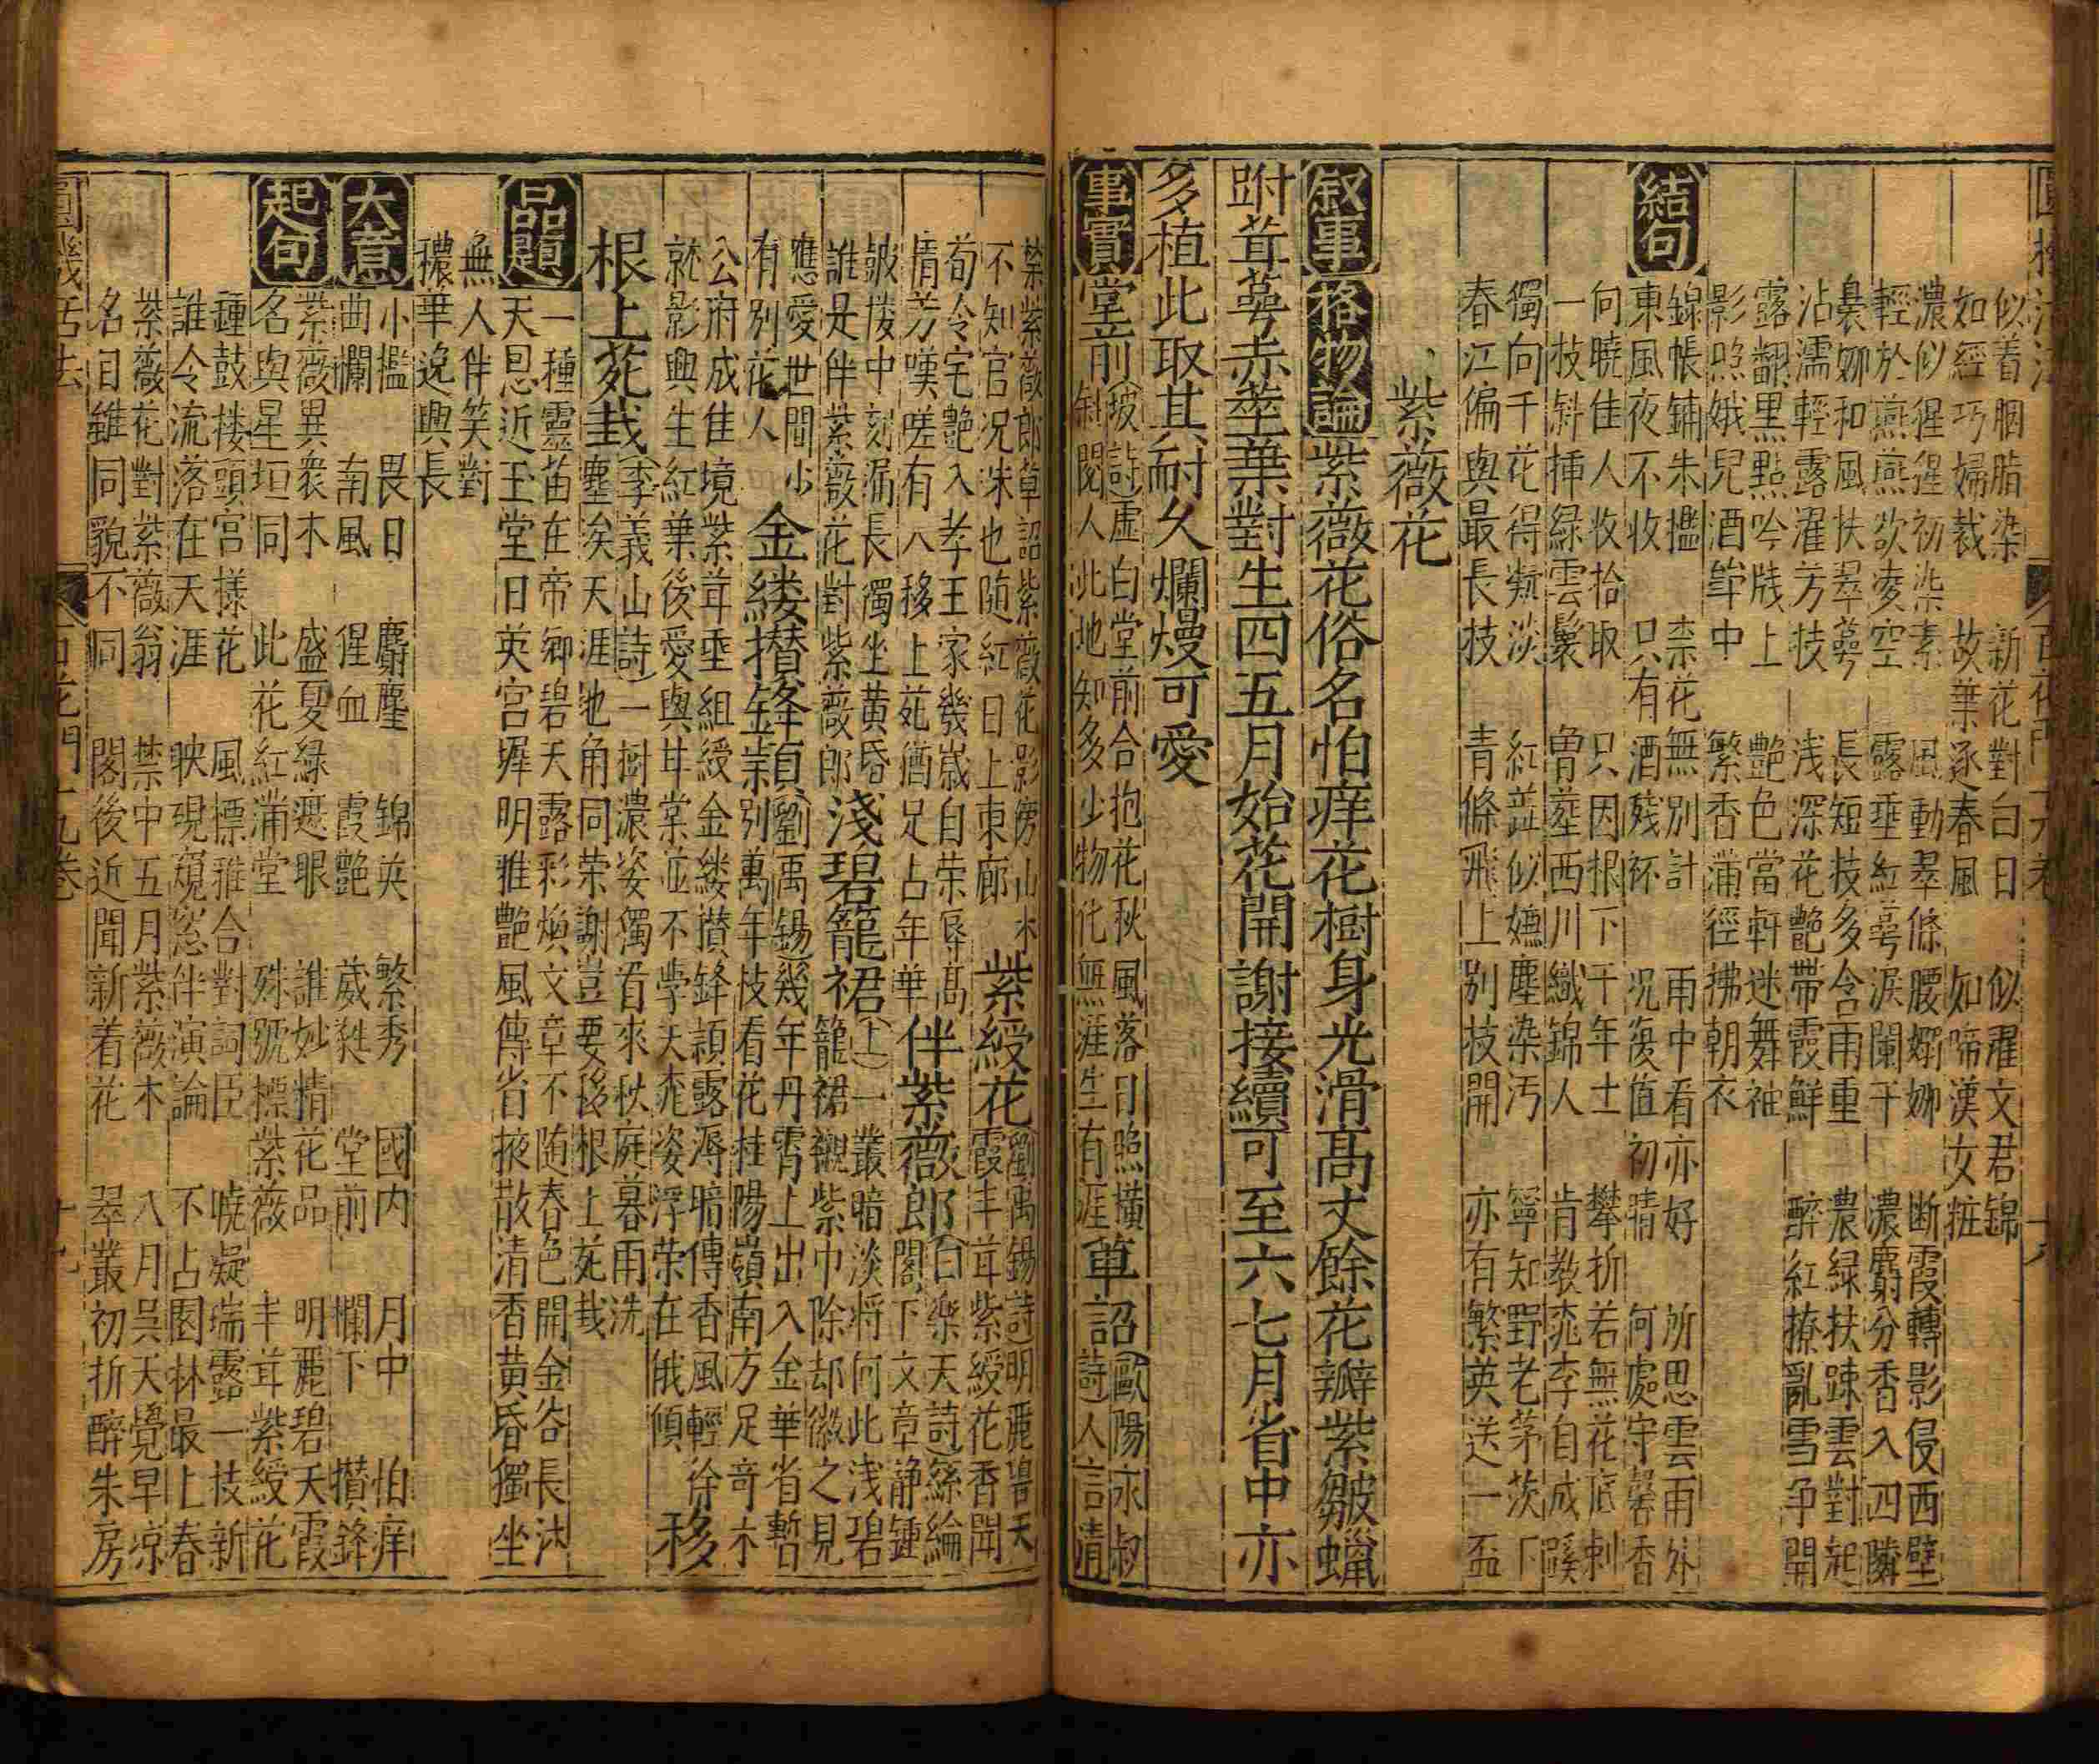 似着胭脂染　新花對白日　似濯文君錦
如經巧婦裁　故葉逐春風　如啼漢女粧
濃似猩猩初染素　風動翠條腰嫋娜　断霞轉影侵西壁
輕於燕燕欲凌空　露垂紅萼淚闌干　濃麝分香入四隣
裊娜和風扶翠萼　長短枝多含雨重　濃緑扶踈雲對起
沾濡輕露濯芳枝　浅深花艶帶霞鮮　醉紅撩亂雪争開
露翻黒點吟牋上　艶色當軒迷舞袖
影照娥兒酒斝中　繁香蒲徑拂朝衣
結句
錦帳鋪朱檻　柰花無別計　雨中看亦好　所思雲雨外
東風夜不收　只有酒殘杯　况復值初晴　何處守馨香
向曉佳人收拾取　只因根下千年土　攀折若無花底刺
一枝斜挿緑雲鬟　曾葬西川織錦人　肯教桃李自成蹊
獨向千花得凝淡　紅蘂似嫌塵染汚　寧知野老茅茨下
春江偏與最長枝　青條飛上別枝開　亦有繁英送一盃
紫薇花
叙事　格物論　紫薇花俗名怕痒花樹身光滑髙丈餘花瓣紫皺蠟
跗茸萼赤莖葉對生四五月始花開謝接續可至六七月省中亦
多植此取其耐久爛熳可愛
事實　堂前
坡詩虚白堂前合抱花秋風落日照橫
斜閱人此地知多少物化無涯生有涯
草詔
歐陽永叔
詩人言清
禁紫薇郎草詔紫薇花影傍山木
不知官况洙也随紅日上東廊
紫綬花
劉禹錫詩明麗碧天
霞丰茸紫綬花香聞
荀令宅艶入孝王家幾嵗自荣辱髙
情芳嘆嗟有人移上苑猶足占年華
伴紫薇郎
白樂天詩絲綸
閣下文章静鍾
皷楼中刻漏長獨坐黄昏
誰是伴紫薇花對紫薇郎
淺碧籠裙
上一叢暗淡将何此浅碧
籠裙襯紫巾除却微之見
應愛世間少
有別花人
金縷攅鋒頴
劉禹錫幾年丹霄上出入金華省暫
別萬年枝看花桂陽嶺南方足奇木
公府成佳境紫茸垂組綬金縷攅鋒頴露溽暗傳香風輕徐
就影興生紅葉後愛與甘棠並不學夭桃姿浮荣在俄傾
移
根上苑栽
李義山詩一樹濃姿獨看來秋庭暮雨洗
塵埃天涯地角同荣謝豈要移根上苑栽
品題
一種靈苗在帝郷碧天露彩煥文章不随春色開金谷長
天恩近玉堂日英宫墀明雅艶風傳省掖散清香黄昏獨坐
無人伴笑對
穠華逸興長
大意
小檻　畏日　麝塵　錦英　繁秀　國内　月中　怕痒
曲欄　南風　猩血　霞艶　葳甤　堂前　欄下　攅鋒
起句
紫薇異衆木　盛夏緑遮眼　誰妙精花品　明麗碧天霞
名與星垣同　此花紅蒲堂　殊號標紫薇　丰茸紫綬花
鍾鼓楼頭宫樣花　風標雅合對詞臣　曉凝瑞露一枝新
誰令流落在天涯　映硯窺窓伴演論　不占園林最上春
紫薇花對紫薇翁　禁中五月紫薇木　八月呉天覺早凉
名目雖同貌不同　閣後近聞新着花　翠叢初折醉朱房